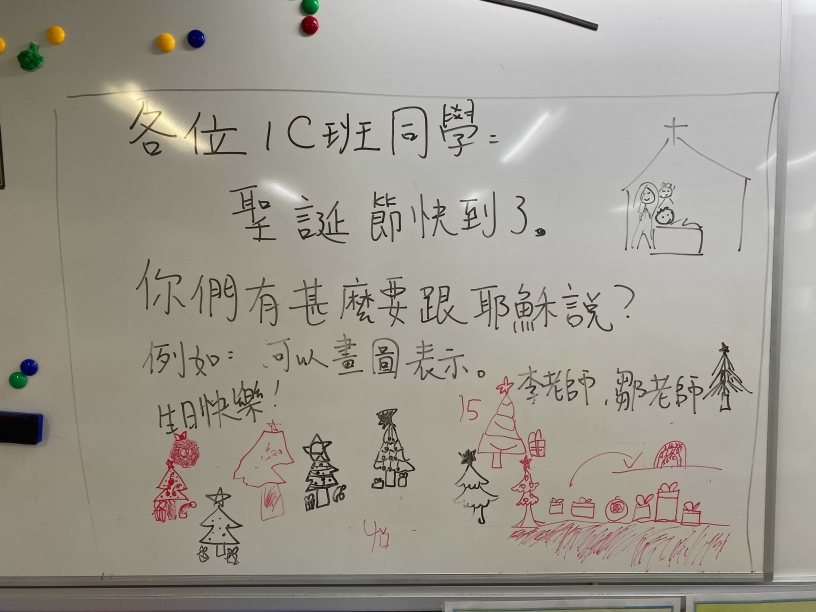 各位1C班同學：
聖誕節快到了。
你們有甚麼要跟耶穌說？
例如：可以畫圖表示。
李老師，鄒老師
生日快樂！
15